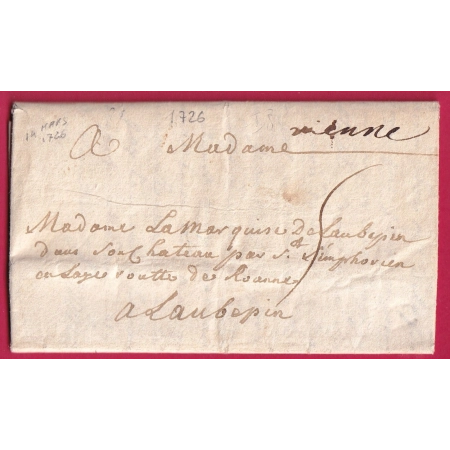 1A MARS
1766
1726
vienne
A Madame
Madame La Marquise De Laubepin
dans Son Chateau par St Simphorien
en Laye routte de Roanne
a Laubepin
5